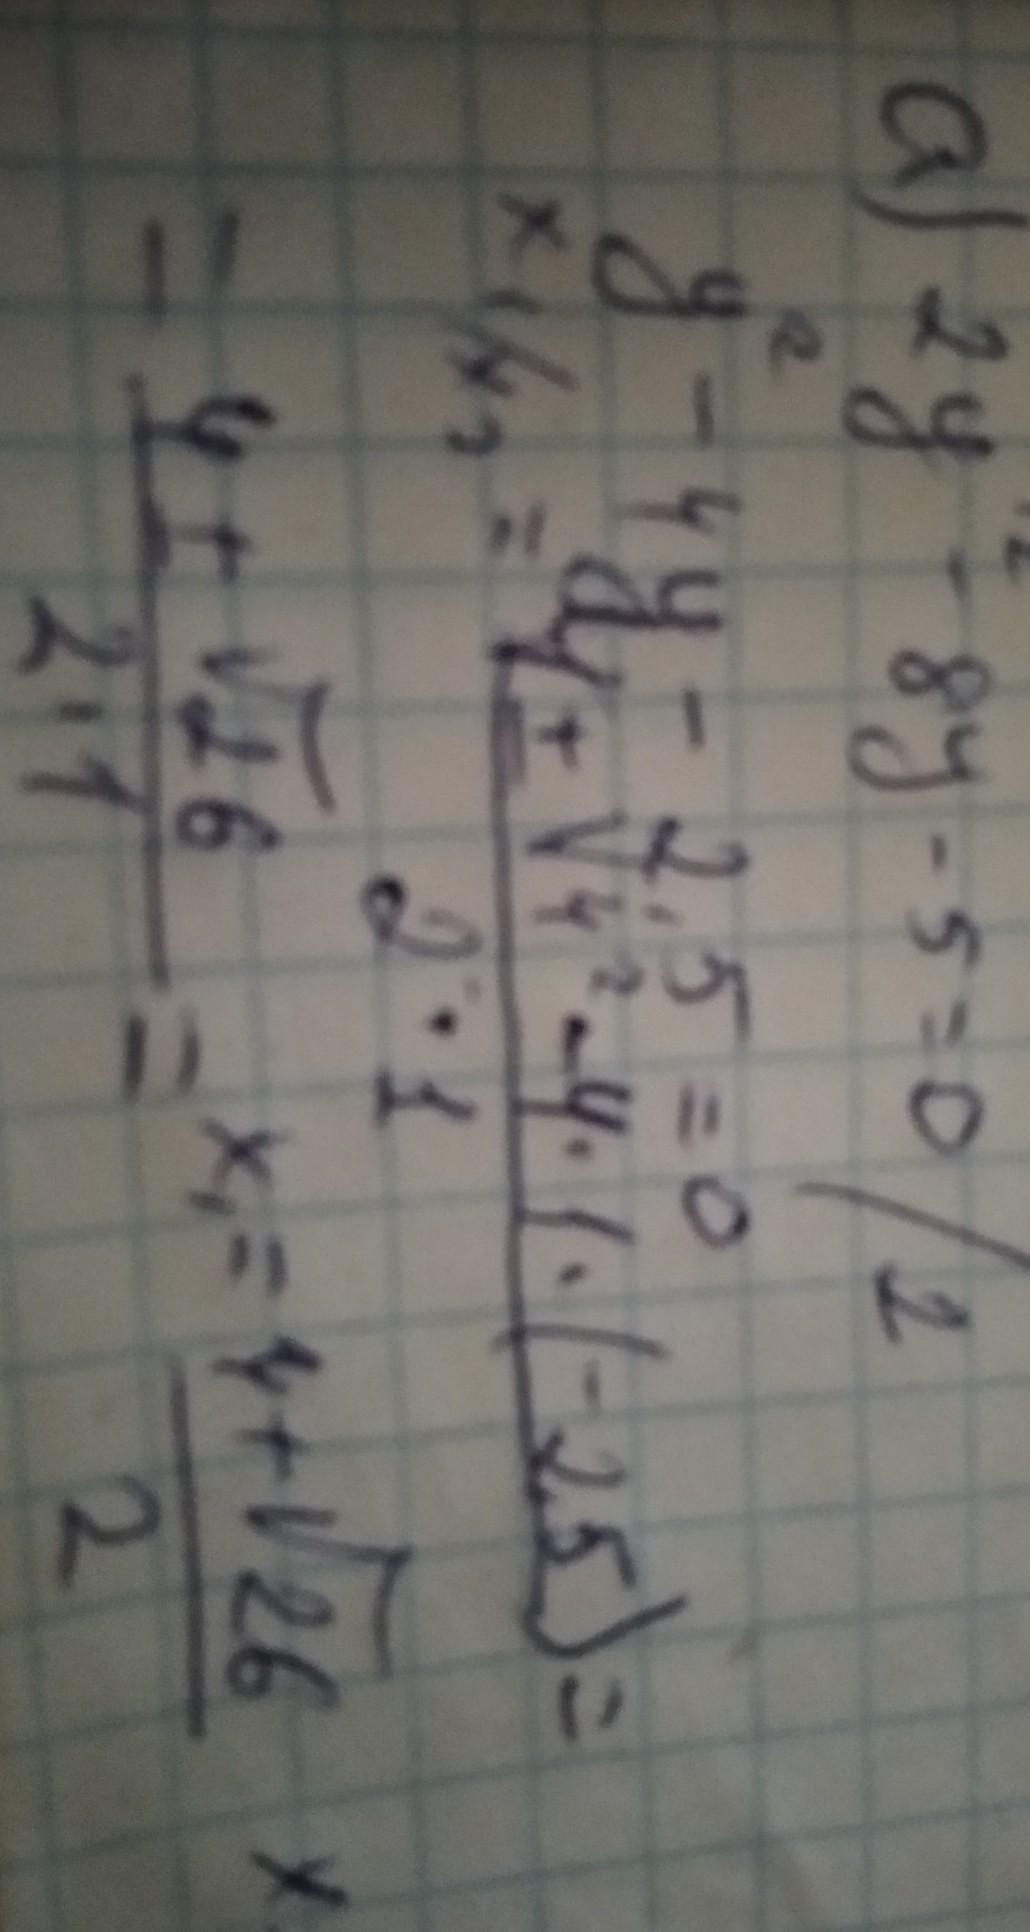 а) 2y² - 8y - 5 = 0 / 2
y² - 4y - 2,5 = 0
x₁/x₂ = (4 ± √4² - 4 · 1 · (-2,5)) / 2 · 1 =
= (4 ± √26) / 2 · 1 = x₁ = (4 + √26) / 2 x